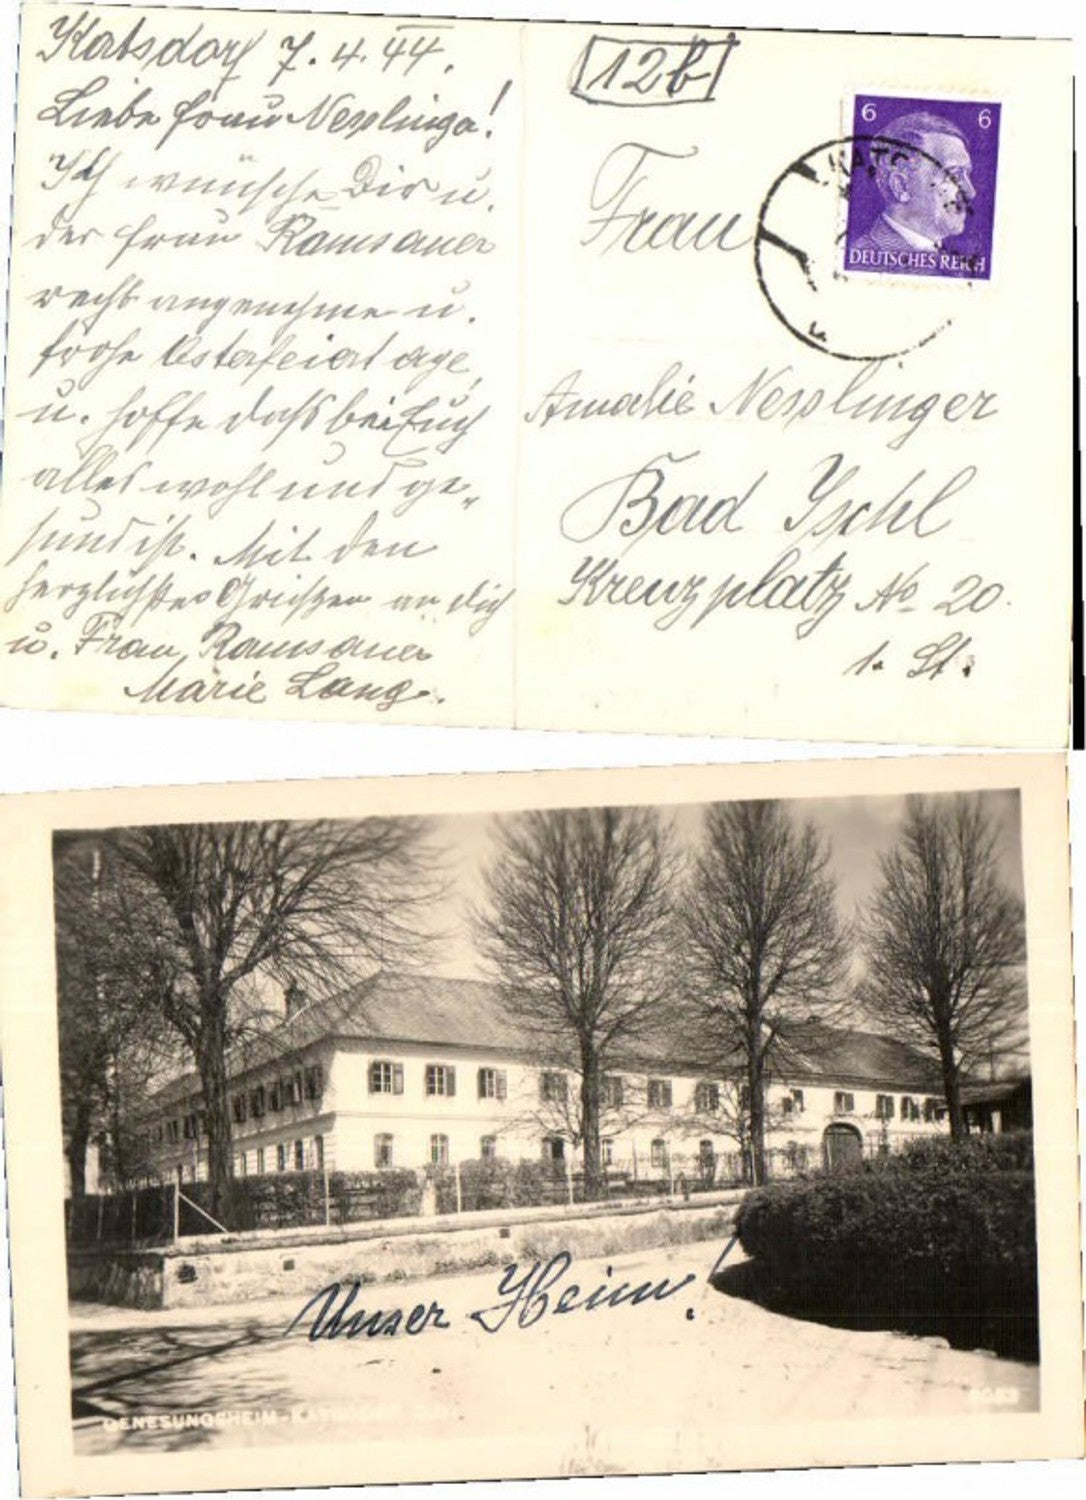 Katsdorf 7.4.44.
Liebe Frau Nesslinga!
Ich wünsche Dir u.
der Frau Ramsauer
recht angenehme u.
frohe Osterfeiertage,
u. hoffe daß bei Euch
alles wohl und ge-
sund ist. Mit den
herzlichsten Grüßen an dich
u. Frau Ramsauer
Marie Lang.
12b
6 6
DEUTSCHES REICH
KATS
Frau
Amalie Nesslinger
Bad Ischl
Kreuzplatz No 20.
1. St.
Unser Heim!
GENESUNGSHEIM-KATSDORF